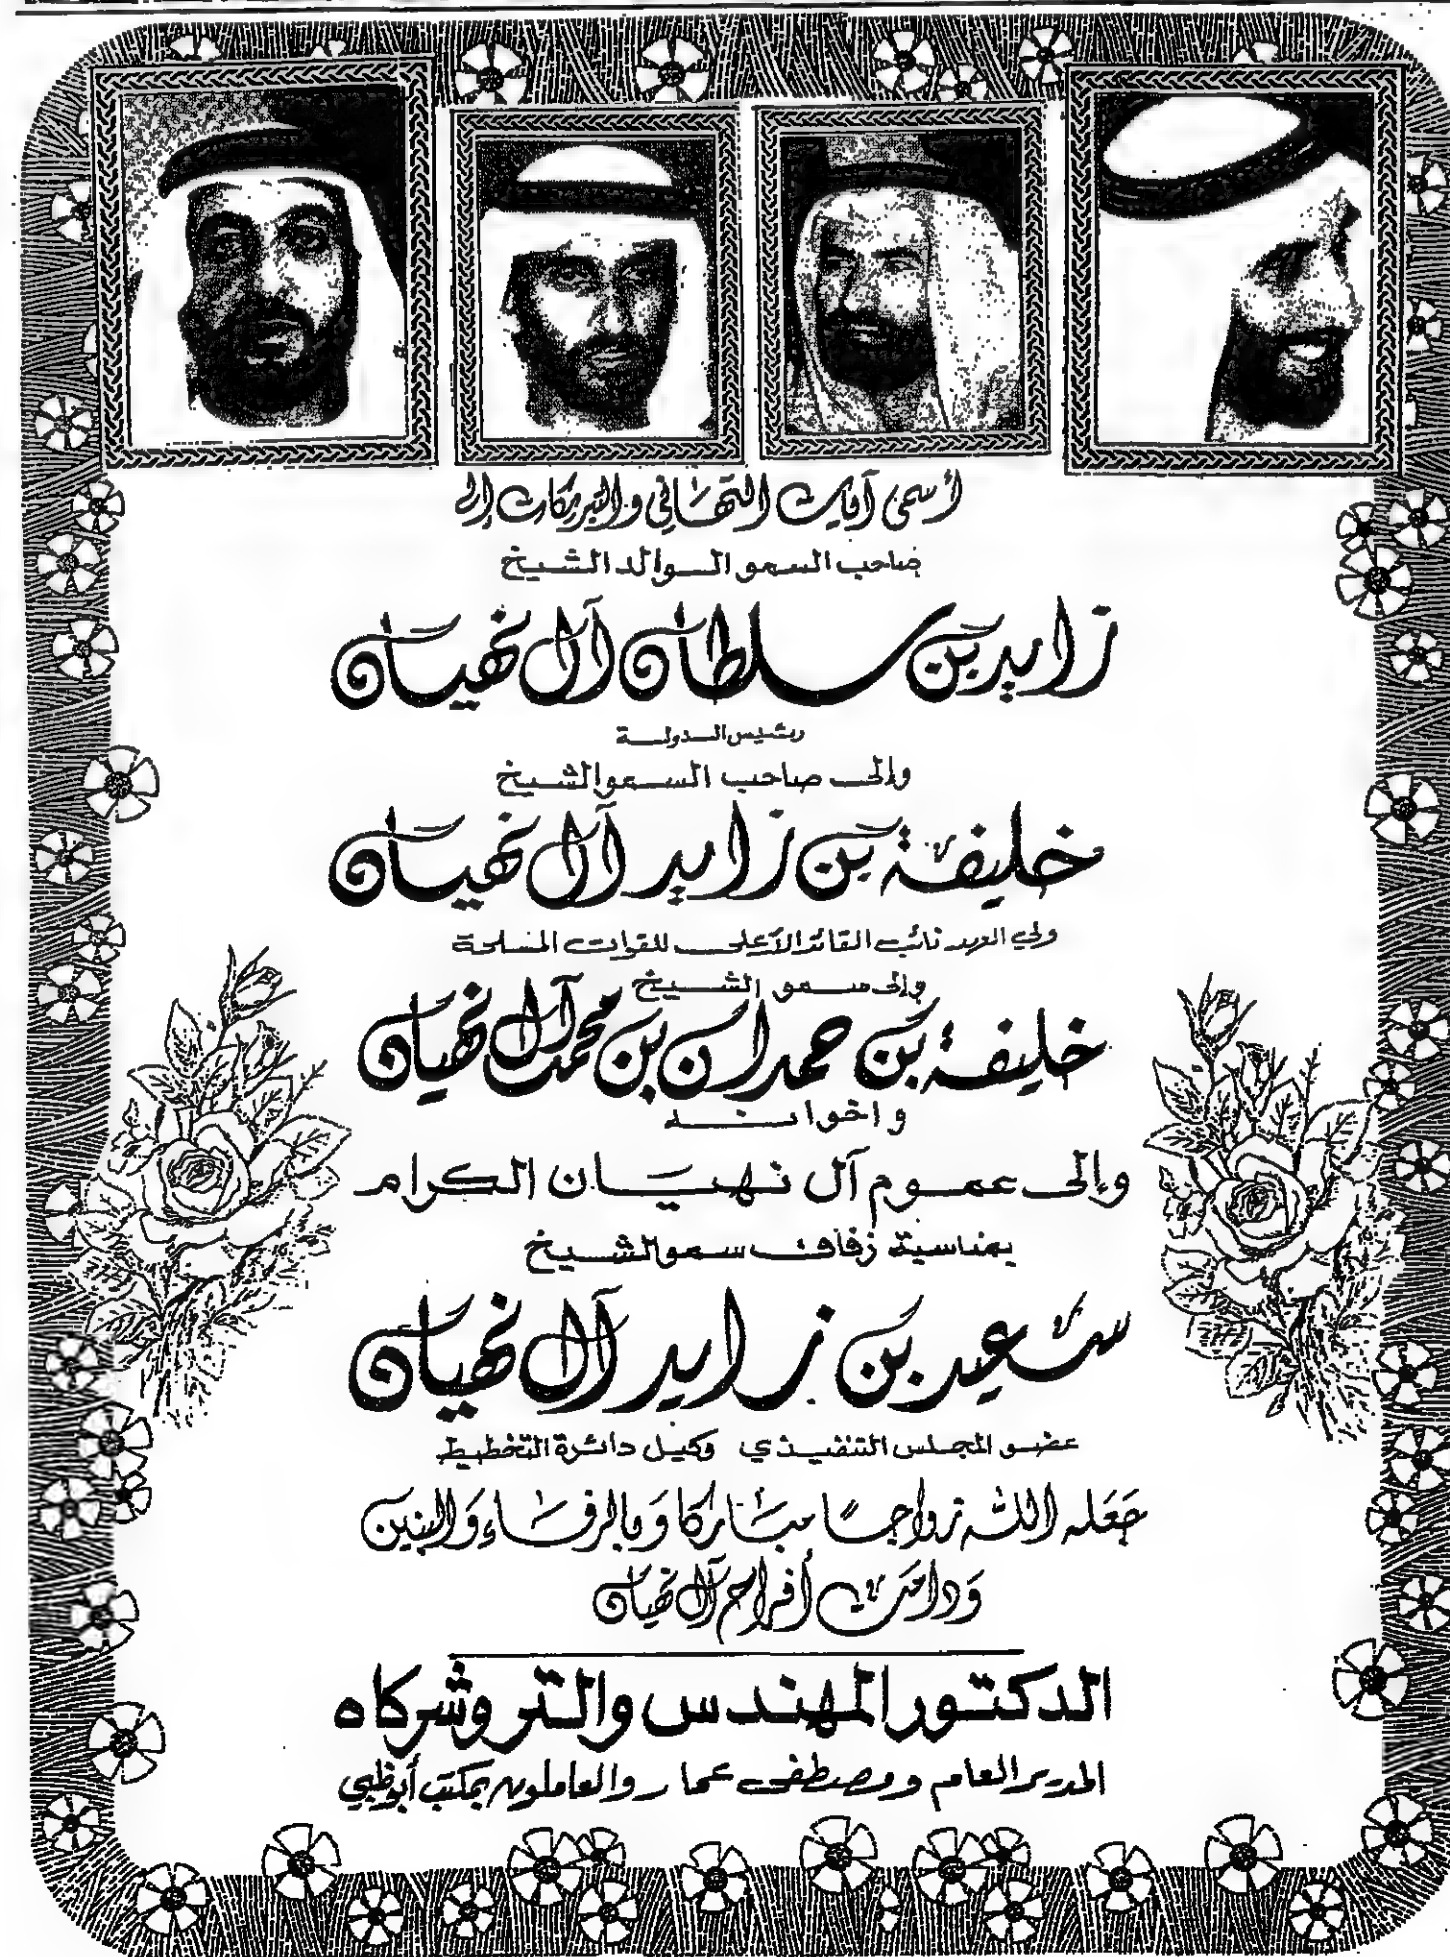 أسمى آيات التهاني والتبريكات إلى
صاحب السمو الوالد الشيخ
زايد بن سلطان آل نهيان
رئيس الدولة
وإلى صاحب السمو الشيخ
خليفة بن زايد آل نهيان
ولي العهد نائب القائد الأعلى للقوات المسلحة
وإلى سمو الشيخ
خليفة بن حمدان بن محمد آل نهيان
واخوانه
وإلى عموم آل نهيان الكرام
بمناسبة زفاف سمو الشيخ
سعيد بن زايد آل نهيان
عضو المجلس التنفيذي وكيل دائرة التخطيط
جَعَله الله زواجًا مبَاركا وَبالرفَاء وَالبنين
وَدامَت أفراح آل نهيان
الدكتور المهندس والتر وشركاه
المدير العام ومصطفى عمار والعاملون بمكتب أبوظبي